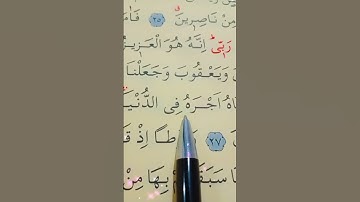 مِنْ نَاصِرٖينَ ۞٢٥ فَاٰمَ
رَبّٖى اِنَّهُ هُوَ الْعَزٖيزُ
وَيَعْقُوبَ وَجَعَلْنَا
اهُ اَجْرَهُ فِى الدُّنْيَا
٢٧ وَلُوطًا اِذْ قَ
مَا سَبَقَكُمْ بِهَا مِنْ